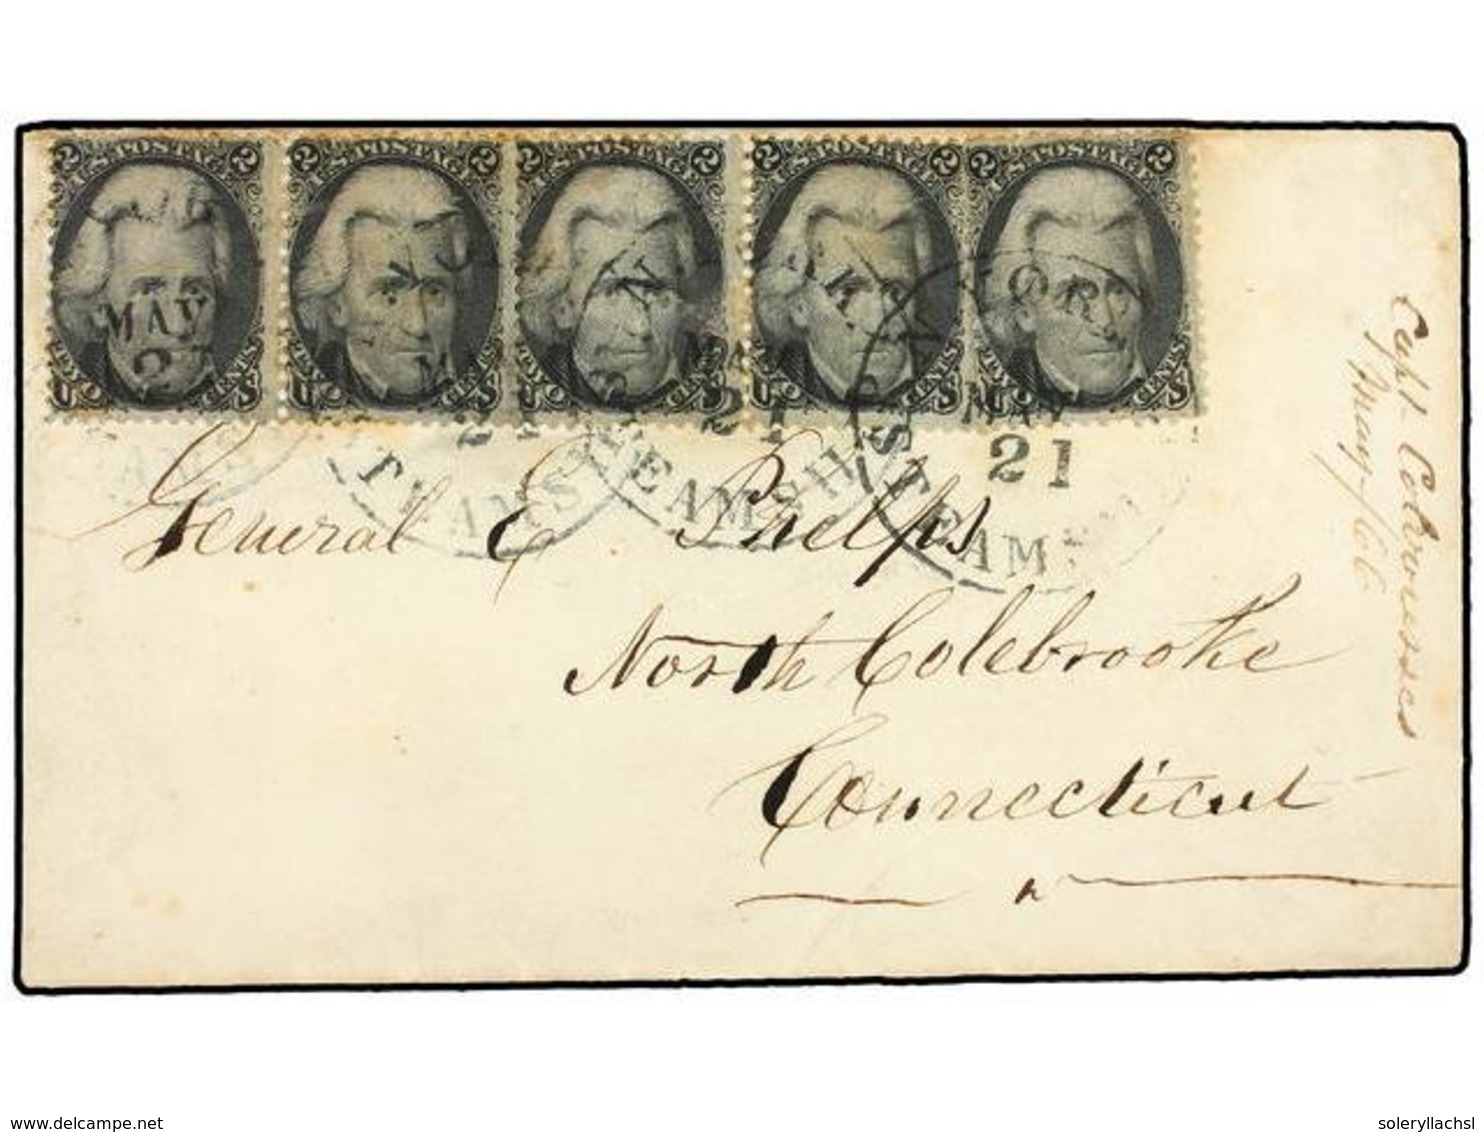 2 U.S. POSTAGE 2 2 U.S. POSTAGE 2 2 U.S. POSTAGE 2 2 U.S. POSTAGE 2 2 U.S. POSTAGE 2
MAY
21
STEAMSHIP
MAY
21
STEAMSHIP
MAY
21
TWO CENTS TWO CENTS TWO CENTS TWO CENTS TWO CENTS
General E Phelps
North Colebrooke
Connecticut
Capt
May /66
www.delcampe.net
soleryllachsl